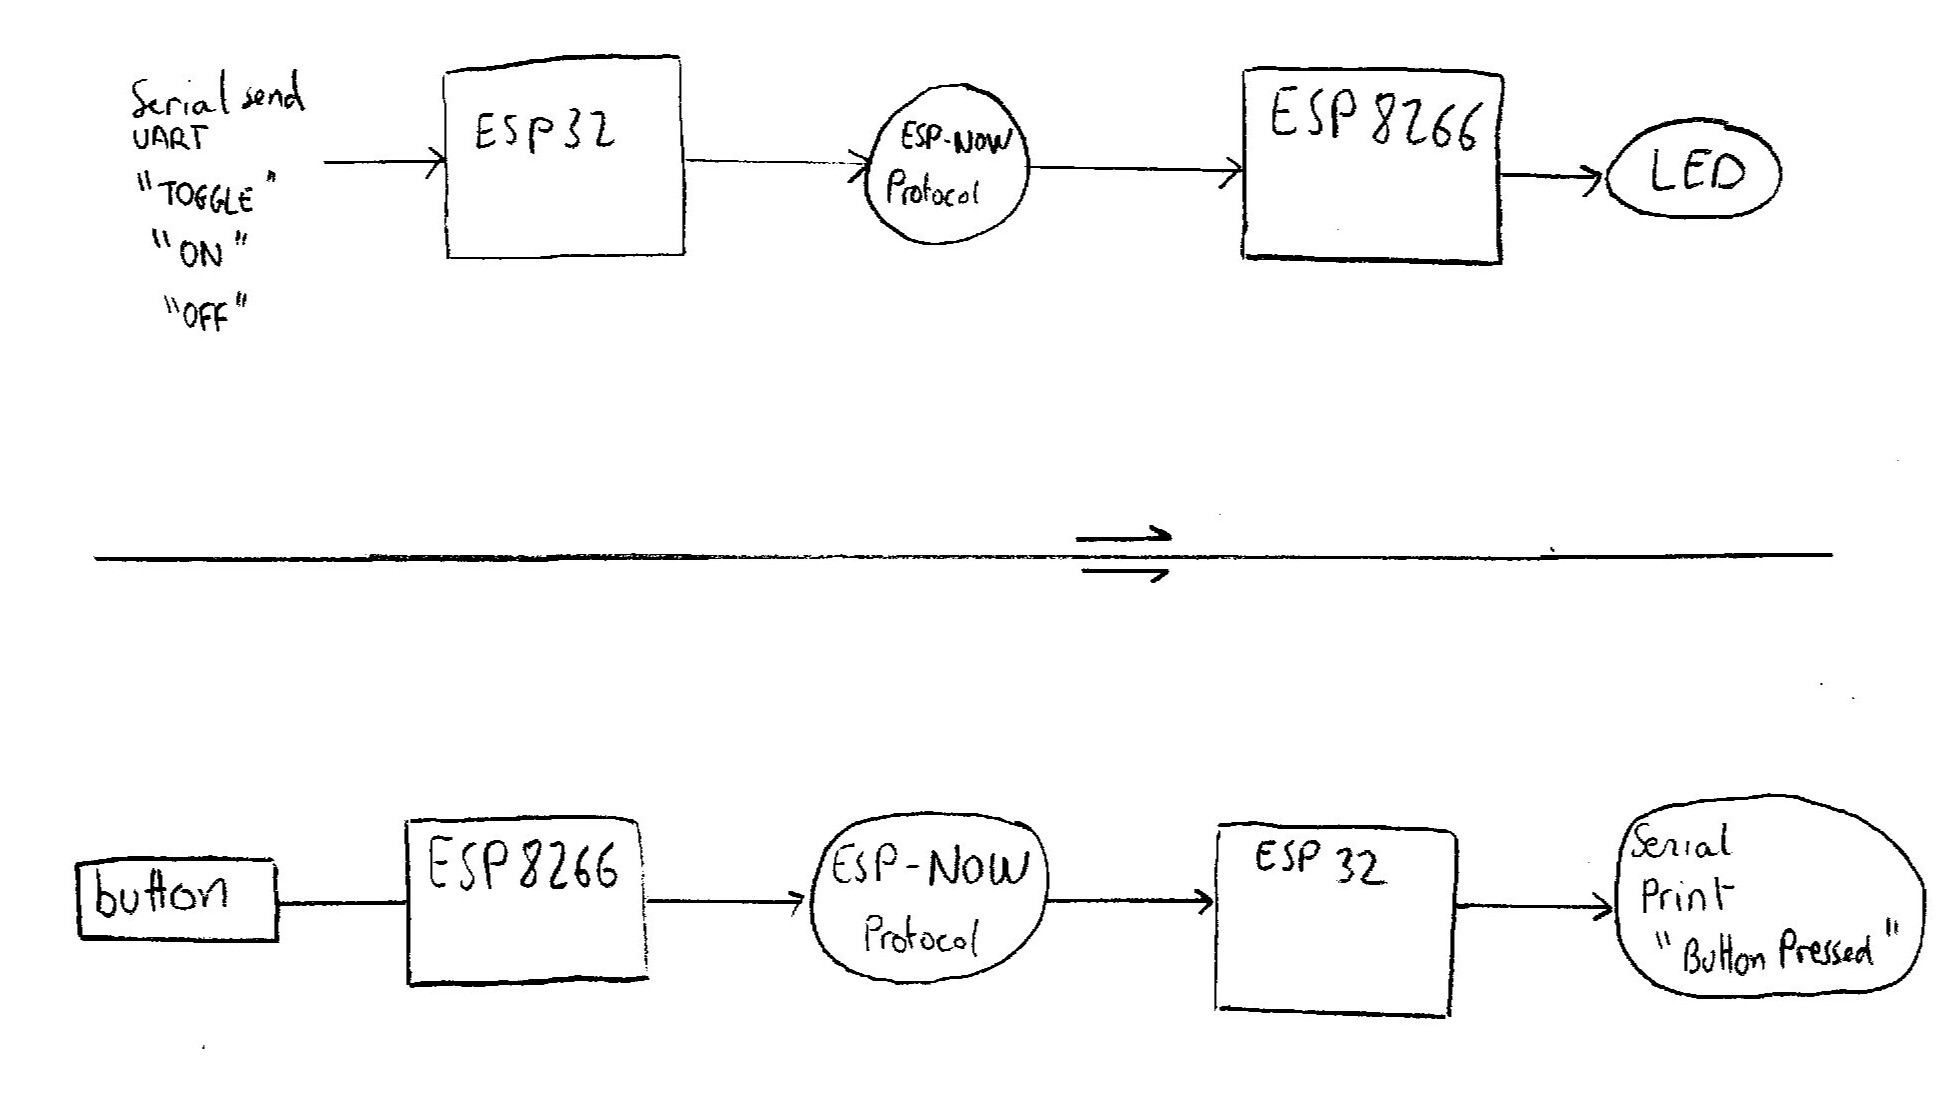 Serial send
UART
"TOGGLE"
"ON"
"OFF"
ESP32
ESP-NOW
Protocol
ESP8266
LED
button
ESP8266
ESP-NOW
Protocol
ESP 32
Serial
Print
"Button Pressed"